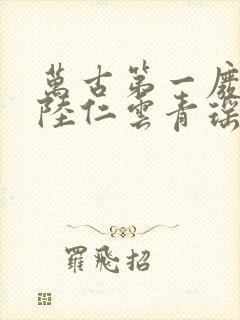 萬古第一廢
陸仁雲青瑶
羅飛招